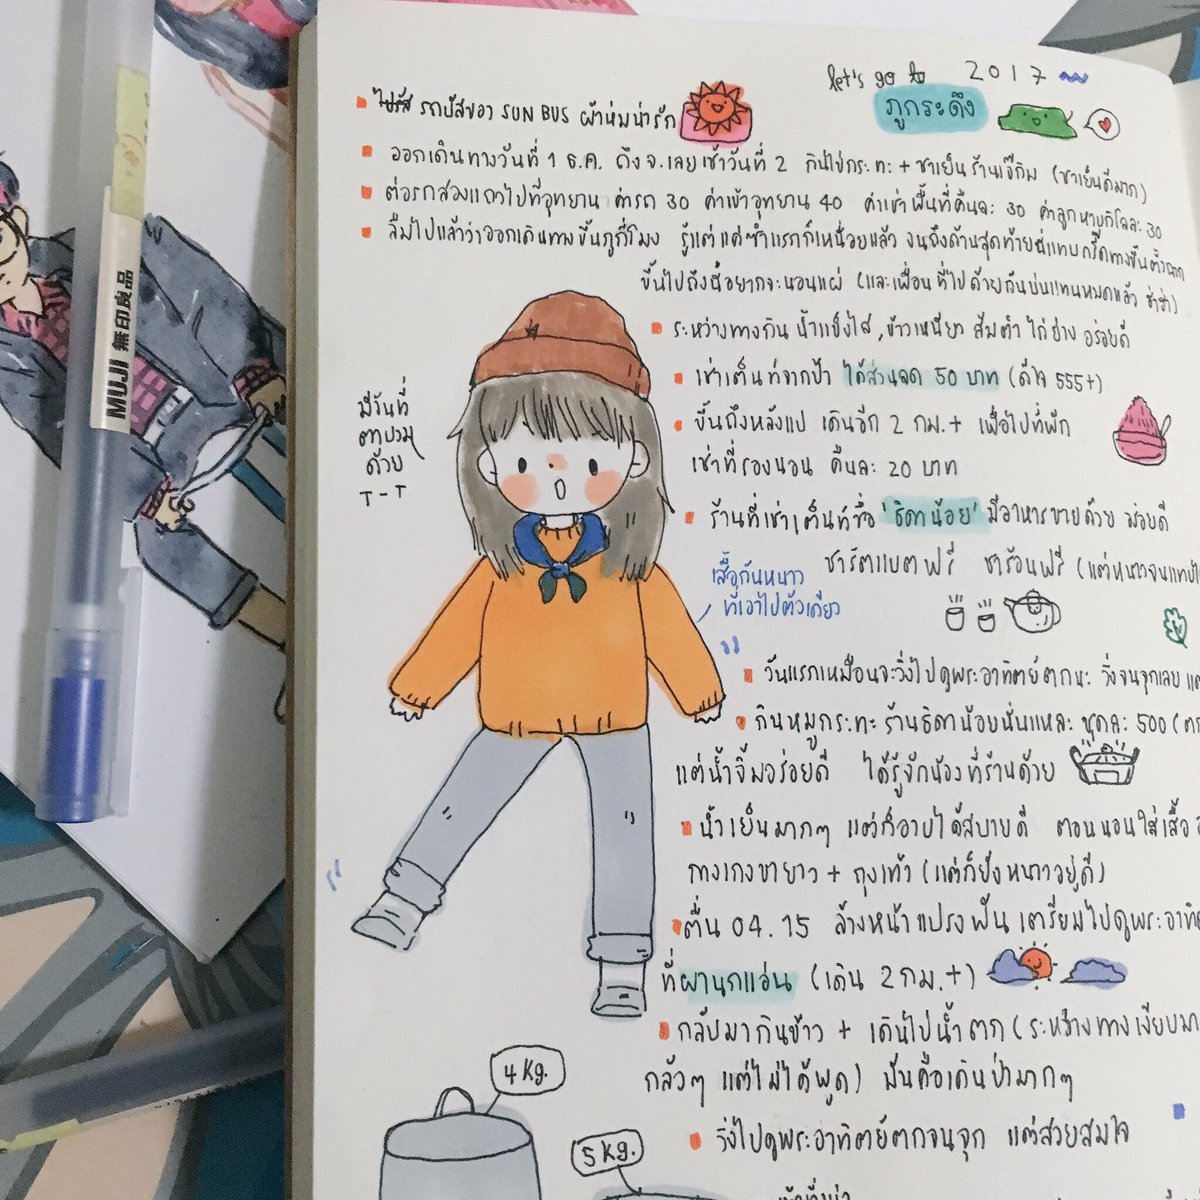 let's go to 2017
ภูกระดึง
ไปรัส รถบัสของ SUN BUS ผ้าห่มน่ารัก
ออกเดินทางวันที่ 1 ธ.ค. ถึง จ.เลย เช้าวันที่ 2 กินไข่กระทะ + ชาเย็น ร้านเจ๊กิม (ชาเย็นดีมาก)
ต่อรถสองแถวไปที่อุทยาน ค่ารถ 30 ค่าเข้าอุทยาน 40 ค่าเช่าพื้นที่คืนละ 30 ค่าลูกหาบกิโลละ 30
ลืมไปแล้วว่าออกเดินทางขึ้นภูกี่โมง รู้แต่แค่ซำแรกก็เหนื่อยแล้ว จนถึงด้านสุดท้ายนี่แทบกรี๊ดทางขึ้นตั้งฉาก
ขึ้นไปถึงนี่อยากจะนอนแผ่ (และเพื่อนที่ไปด้วยกันบ่นแทนหมดแล้ว ฮ่าฮ่า)
ระหว่างทางกิน น้ำแข็งไส, ข้าวเหนียว ส้มตำ ไก่ย่าง อร่อยดี
เช่าเต็นท์จากป้า ได้ส่วนลด 50 บาท (ดีใจ 555+)
ขึ้นถึงหลังแป เดินอีก 2 กม.+ เพื่อไปที่พัก
เช่าที่รองนอน คืนละ 20 บาท
ร้านที่เช่าเต็นท์ชื่อ 'ธิดาน้อย' มีอาหารขายด้วย อร่อยดี
ชาร์ตแบตฟรี ชาร้อนฟรี (แต่หนาวจนแทบ
มีวันที่
ตาบวม
ด้วย
T-T
เสื้อกันหนาว
ที่เอาไปตัวเดียว
วันแรกเหมือนจะวิ่งไปดูพระอาทิตย์ตกนะ วิ่งจนจุกเลย
กินหมูกระทะ ร้านธิดาน้อยนั่นแหละ ชุดละ 500
แต่น้ำจิ้มอร่อยดี ได้รู้จักน้องที่ร้านด้วย
น้ำเย็นมากๆ แต่ก็อาบได้สบายดี ตอนนอนใส่เสื้อ
กางเกงขายาว + ถุงเท้า (แต่ก็ยังหนาวอยู่ดี)
ตื่น 04.15 ล้างหน้า แปรงฟัน เตรียมไปดูพระอาทิ
ที่ผานกแอ่น (เดิน 2 กม.+)
กลับมากินข้าว + เดินไปน้ำตก (ระหว่างทางเงียบมา
กลัวๆ แต่ไม่ได้พูด) มันคือเดินป่ามากๆ
วิ่งไปดูพระอาทิตย์ตกจนจุก แต่สวยสมใจ
4 kg.
5 kg.
MUJI 無印良品